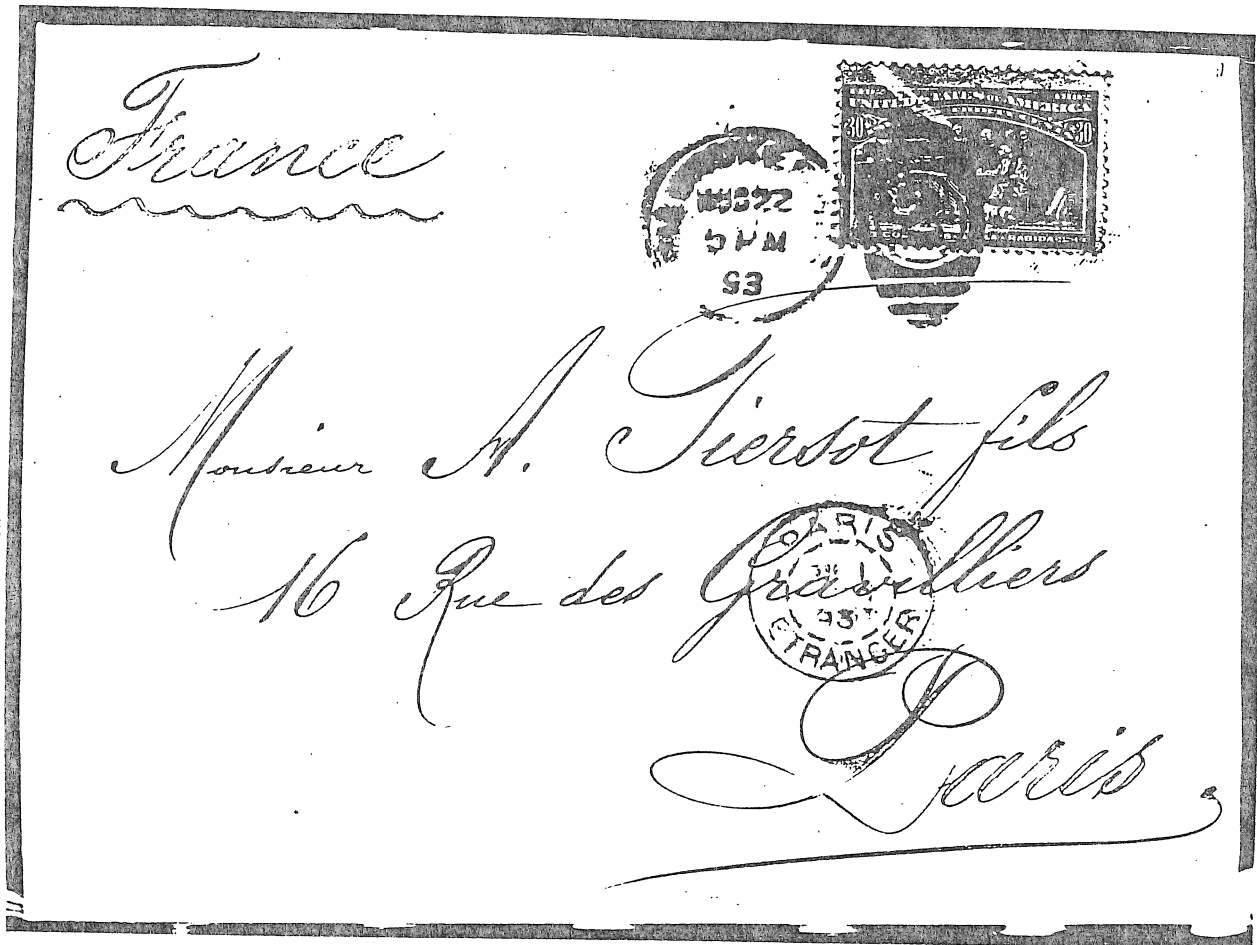 France
UNITED STATES OF AMERICA
30 30
22
5 PM
93
Monsieur A. Tiersot fils
16 Rue des Gravilliers
PARIS
93
ETRANGER
Paris